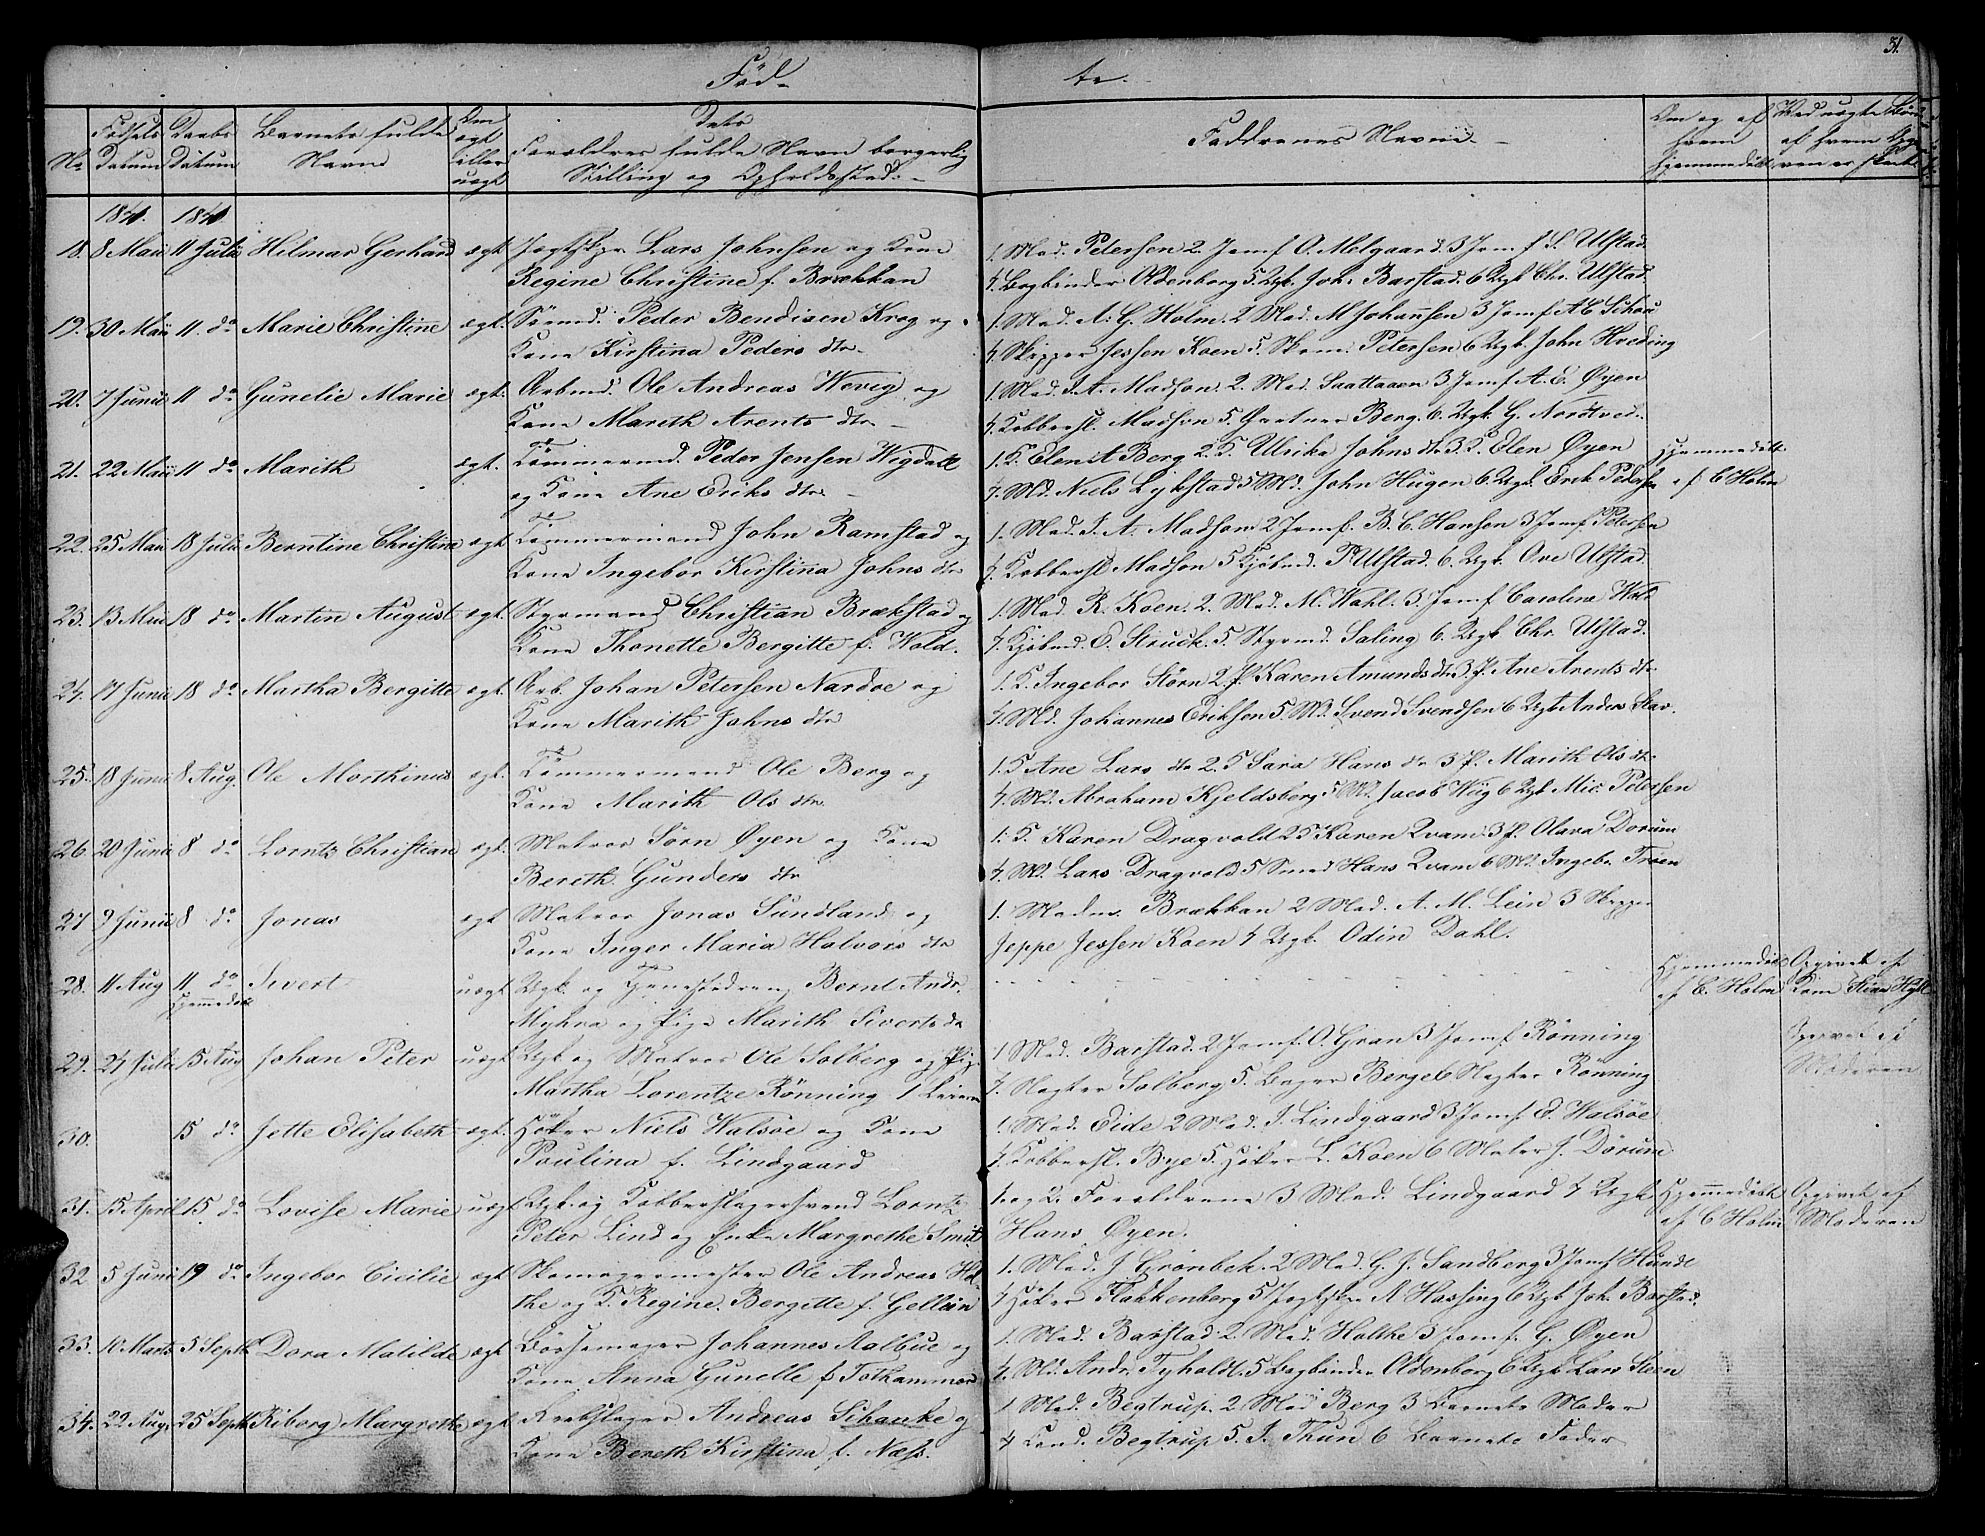 31.
Fød-
te.
No Fødsels Datum Daabs Datum Barnets fulde Navn Om ægte eller uægt Dets Forældres fulde Navn borgerlig Stilling og Opholdssted. Faddrenes Navne. Om og af hvem hjemmedøbt
1841. 1841.
18. 8 Mai 11 Julii Hilmar Gerhard ægt Jægtskpr Lars Johnsen og Kone
Regine Christine f. Brækkan
1. Mad. Petersen 2 Jomf. O. Melgaard. 3 Jomf S. Ulstad.
4. Bogbinder Oldenborg 5. Ugk. Joh. Barstad. 6 Ugk Chr. Ulstad.
19. 30 Mai 11. do Marie Christine ægt. Sømd. Peder Bendixen Krog og
Kone Kirstina Peders dtr.
1. Mad. A. G. Holm. 2 Mad. M Johansen 3 Jomf AE Schou
4. Skipper Jessen Koen 5. Skom. Petersen 6 Ugk John Hveding
20. 7 Junii 11 do Gunelie Marie ægt. Arbmd. Ole Andreas Wevig og
Kone Marith Arents dtr.
1. Mad. I. A. Madson. 2. Mad. Saattaaen 3 Jomf A. E. Øyen
4. Kobbersl. Madson 5. Gartner Berg. 6. Ugk. G. Nordtved.
21. 22 Mai 11 do Marith ægt. Tömmermd. Peder Jensen Wigdal
og Kone Ane Eriks dtr.
1. K. Elen A Berg 2. K. Ulrika Johns dtr 3. P. Elen Øyen
4. Md. Niels Lykstad 5 Md. John Hugen 6. Ugk. Erik Pedersen
Hjemmedøbt
af C Holm
22. 25 Mai 18 Julii Berntine Christine ægt Tömmermand John Ramstad og
Kone Ingebor Kirstina Johns dtr
1. Mad. I. A. Madson 2 Jomf. B. C. Hanson 3 Jomf. Petersen
4. Kobbersl Madson 5 Kjöbmd. P Ulstad. 6. Ugk. Ove Ulstad.
23. 13 Mai 18 do Martin August ægt. Styrmand Christian Brækstad og
Kone Thonette Bergitte f. Wold.
1. Mad. R. Koen. 2. Mad. M. Wahl. 3. Jomf Caroline Wold
4. Kjöbmd. E. Struck. 5 Styrmd. Saling 6. Ugk Chr. Ulstad.
24. 17 Junii 18 do Martha Bergitte ægt. Arb. Johan Petersen Nardoe og
Kone Marith Johns dtr
1. K. Ingebor Störn 2. P. Karen Amunds dtr 3. P. Ane Arents dtr
4. Md. Johannes Eriksen 5. Md. Svend Svendsen 6 Ugk Anders Slav.
25. 18 Junii 8 Aug. Ole Morthinus ægt. Tömmermand Ole Berg og
Kone Marith Ols dtr.
1. K Ane Lars dtr 2. K Sara Hans dtr 3 P. Marith Ols dtr
4. Md. Abraham Kjeldsberg 5 Md. Jacob Wiig 6 Ugk Mic. Petersen
26. 20 Junii 8 do Lorntz Christian ægt. Matros Sörn Øyen og Kone
Bereth Gunders dtr
1. K. Karen Dragvold 2 K Karen Qvam. 3 P. Olava Dorum
4. Md. Lars Dragvold 5 Smed Hans Qvam 6 Md. Ingebr. Tröen
27 9 Junii 8 do Jonas ægt Matros Jonas Sundland og
Kone Inger Maria Halvors dtr
1. Madm. Brækkan 2 Mad. A. M. Lein 3 Skipper
Jeppe Jessen Koen 4 Ugk. Odin Dahl.
28. 11 Aug 11 do Sivert uægt Ugk. og Tjenestedreng Bernt Andr.
Hjemmedøbt
Myhra og Pige Marith Siverts dtr
Hjemmedøbt Opgivet af
af C. Holm Kone
29. 24 Julii 15 Aug Johan Peter uægt Ugk og Matros Ole Solberg og Pige
Martha Lorentze Rönning 1 Leierm
1 Mad. Barstad. 2 Jomf. O. Gran 3 Jomf. Rönning
4. Vægter Solberg 5. Bager Berge 6 Vægter Rönning
Opgivet af
Moderen
30. 15 do Jette Elisabeth ægt. Höker Niels Walsöe og Kone
Paulina f. Lindgaard
1. Mad. Eide 2 Mad. I. Lindgaard 3 Jomf. E. Walsöe
4. Kobbersl. Bye 5. Höker L. Koen 6 Maler J. Dörum
31. 15 April 15 do Lovise Marie uægt Ugk. og Kobberslagersvend Lorntz
Peter Lind og Enke Margrethe Smit
1. og 2. Forældrene 3 Mad. Lindgaard 4 Ugk
Hans Øyen.
Hjemmedøbt Opgivet af
af C Holm Moderen
32. 5 Junii 19 do Ingebor Cicilie ægt Skomagermester Ole Andreas Hol-
the og K. Regine Bergitte f. Gellein
1. Mad. J Grönbek. 2 Mad. G. J. Sandberg 3 Jomf Hunde
4 Höker Flakkenberg 5 Jægtskpr N Hassing 6 Ugk Joh. Barstad.
33. 10 Marts 5 Septbr Dora Matilde ægt Börsemager Johannes Aalbue og
Kone Anna Gunelle f Tothammer
1. Mad. Barstad 2. Mad. Holthe 3 Jomf. G. Øyen
4. Md. Andr. Tyholdt. 5 Bogbinder Oldenborg 6 Ugk Lars Steen
34. 22 Aug. 25 Septbr Riborg Margrethe ægt Andreas Schanke og
Kone Bereth Kirstina f. Næss.
1 Mad. Begtrup. 2 Mad Berg 3 Barnets Moder
4 Cand. Begtrup 5. I. Thun 6 Barnets Fader